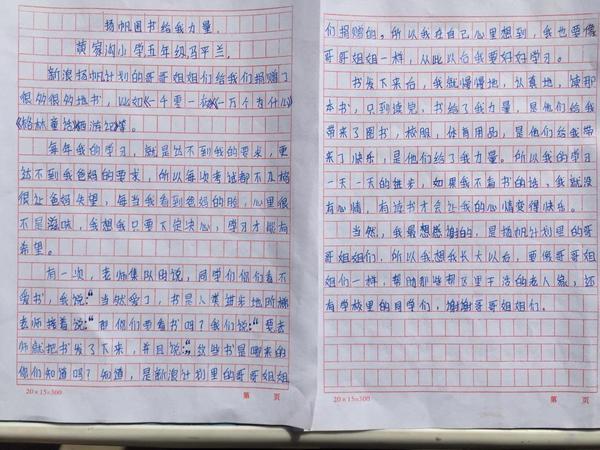 扬帆图书给我力量.
黄家沟小学五年级马平兰.
新浪扬帆计划的哥哥姐姐们给我们捐赠了
很多很多地书,比如《一千零一夜》《一万个为什么》
《格林童话》《西游记》等.
每年我的学习,就是达不到我的要求,更
达不到我爸妈的要求,所以每次考试都不及格
很让爸妈失望,每当我看到爸妈的脸,心里很
不是滋味,我想我只要下定决心,学习才能有
希望.
有一次,老师集队由说,同学们你们看不
爱书,我说:“当然爱了,书是人类进步地阶梯
老师接着说:“那你们要看书吗?我们说:“要老
师就把书发了下来,并且说:“这些书是哪来的
你们知道吗?知道,是新浪计划里的哥哥姐姐
们捐赠的,所以我在自己心里想到,我也要像
哥哥姐姐一样,从此以后我要好好学习.
书发下来后,我就慢慢地,认真地,读那
本书,只到读完,书给了我力量,是他们给我
带来了图书,校服,体育用品,是他们给我带
来了快乐,是他们给了我力量.所以我的学习
一天一天的进步,如果我不看书的话,我就没
有心情,有读书才会让我的心情变得快乐.
当然,我最想感谢的,是扬帆计划里的哥
哥姐姐们,所以我想我长大以后,要像哥哥姐
姐们一样,帮助那些郡区里干活的老人家,还
有学校里的同学们,谢谢哥哥姐姐们.
20×15=300
第 页
20×15=300
第 页